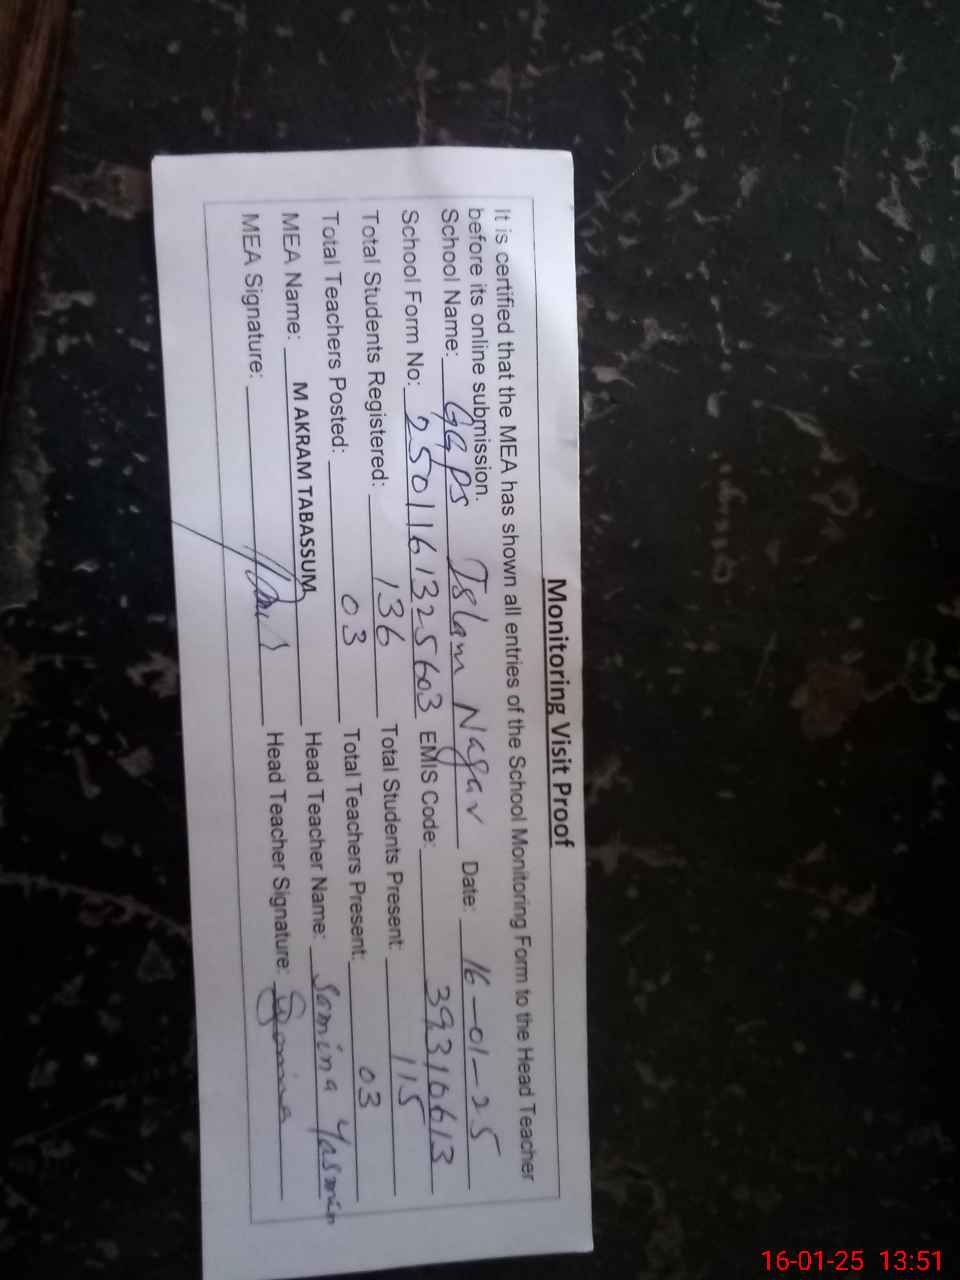 Monitoring Visit Proof
It is certified that the MEA has shown all entries of the School Monitoring Form to the Head Teacher
before its online submission.
School Name: GGPS Islam Nagar Date: 16-01-25
School Form No: 2501161325603 EMIS Code: 39310613
Total Students Registered: 136 Total Students Present: 115
Total Teachers Posted: 03 Total Teachers Present: 03
MEA Name: M AKRAM TABASSUM Head Teacher Name: Samina Yasmin
MEA Signature: Head Teacher Signature: Samina
16-01-25 13:51